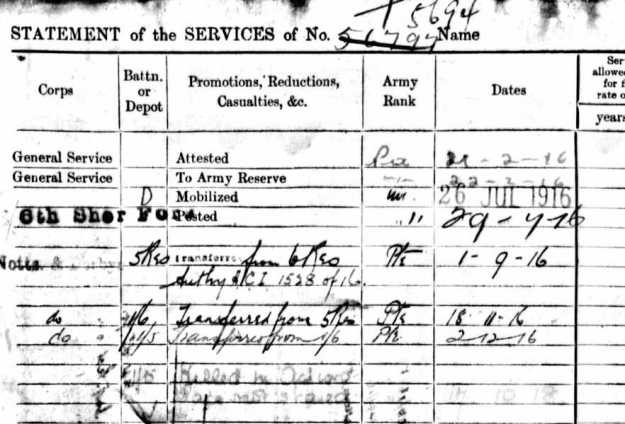 5694
STATEMENT of the SERVICES of No. 56794 Name
Corps Battn. or Depot Promotions, Reductions, Casualties, &c. Army Rank Dates Ser allowe for f rate o
years
General Service Attested Pte - 2 - 16
General Service To Army Reserve
D Mobilized 26 JUL 1916
6th Sher For Posted " 29 - 7 - 16
Notts 5 Res transferred from 6 Res Pte 1 - 9 - 16
Authy ACI 1528 of 16.
do 1/6 Transferred from 5 Res Pte 18 11 - 16
do 1/5 Transferred from 1/6 Pte 2 - 12 - 16
Killed in Action
17 10 18